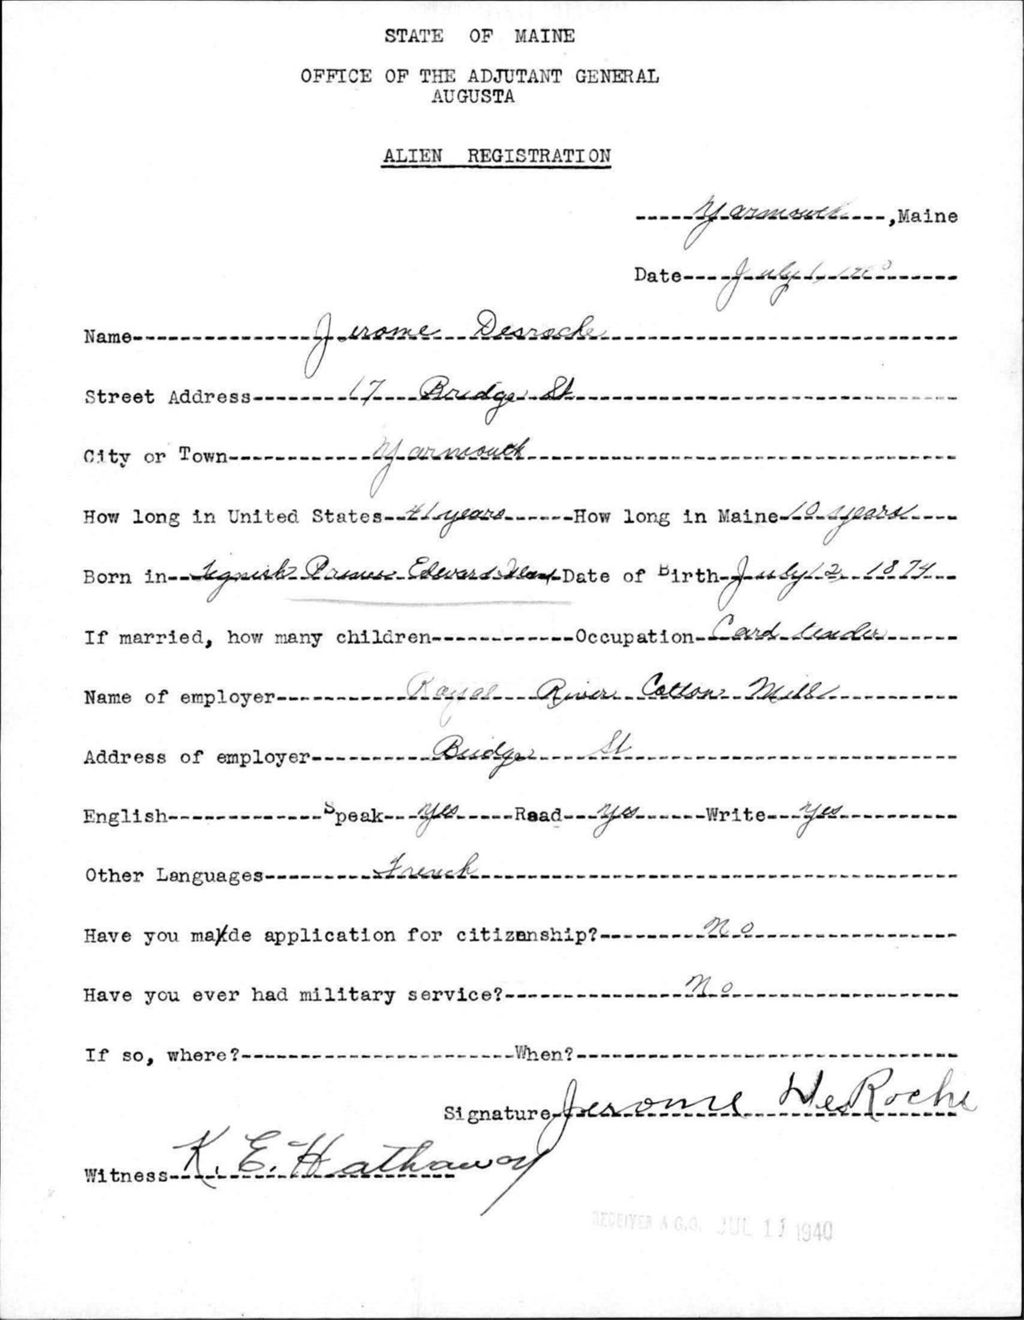 STATE OF MAINE
OFFICE OF THE ADJUTANT GENERAL
AUGUSTA
ALIEN REGISTRATION
Yarmouth, Maine
Date July 1, 
Name Jerome Desroche
Street Address 17 Bridge St
City or Town Yarmouth
How long in United States 41 years How long in Maine 10 years
Born in Tignish Prince Edward Date of Birth July 12 1874
If married, how many children Occupation Card
Name of employer Royal River Cotton Mill
Address of employer Bridge St
English Speak yes Read yes Write yes
Other Languages French
Have you made application for citizenship? No
Have you ever had military service? No
If so, where? When?
Signature Jerome DesRoche
Witness K. E. Hathaway
RECEIVED A.G.O. JUL 11 1940